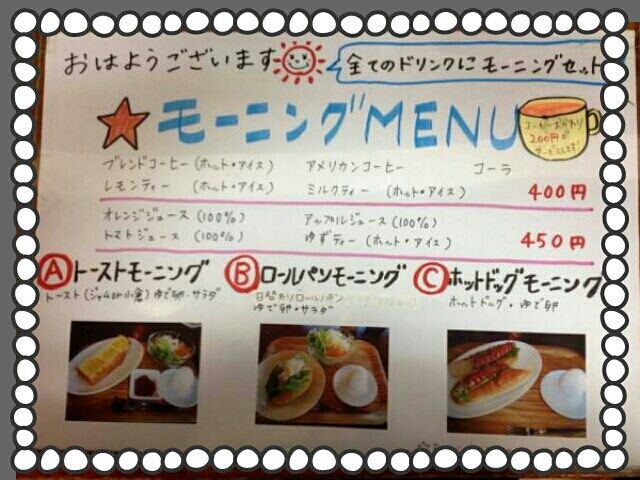 おはようございます
全てのドリンクにモーニングセット
モーニングMENU
コーヒーおかわり
200円で
サービスします!
ブレンドコーヒー (ホット・アイス) アメリカンコーヒー コーラ
レモンティー (ホット・アイス) ミルクティー (ホット・アイス) 400円
オレンジジュース (100%) アップルジュース (100%)
トマトジュース (100%) ゆずティー (ホット・アイス) 450円
Ⓐトーストモーニング
トースト (ジャムor小倉) ゆで卵・サラダ
Ⓑロールパンモーニング
日替わりロールパン
ゆで卵・サラダ
Ⓒホットドッグモーニング
ホットドッグ・ゆで卵